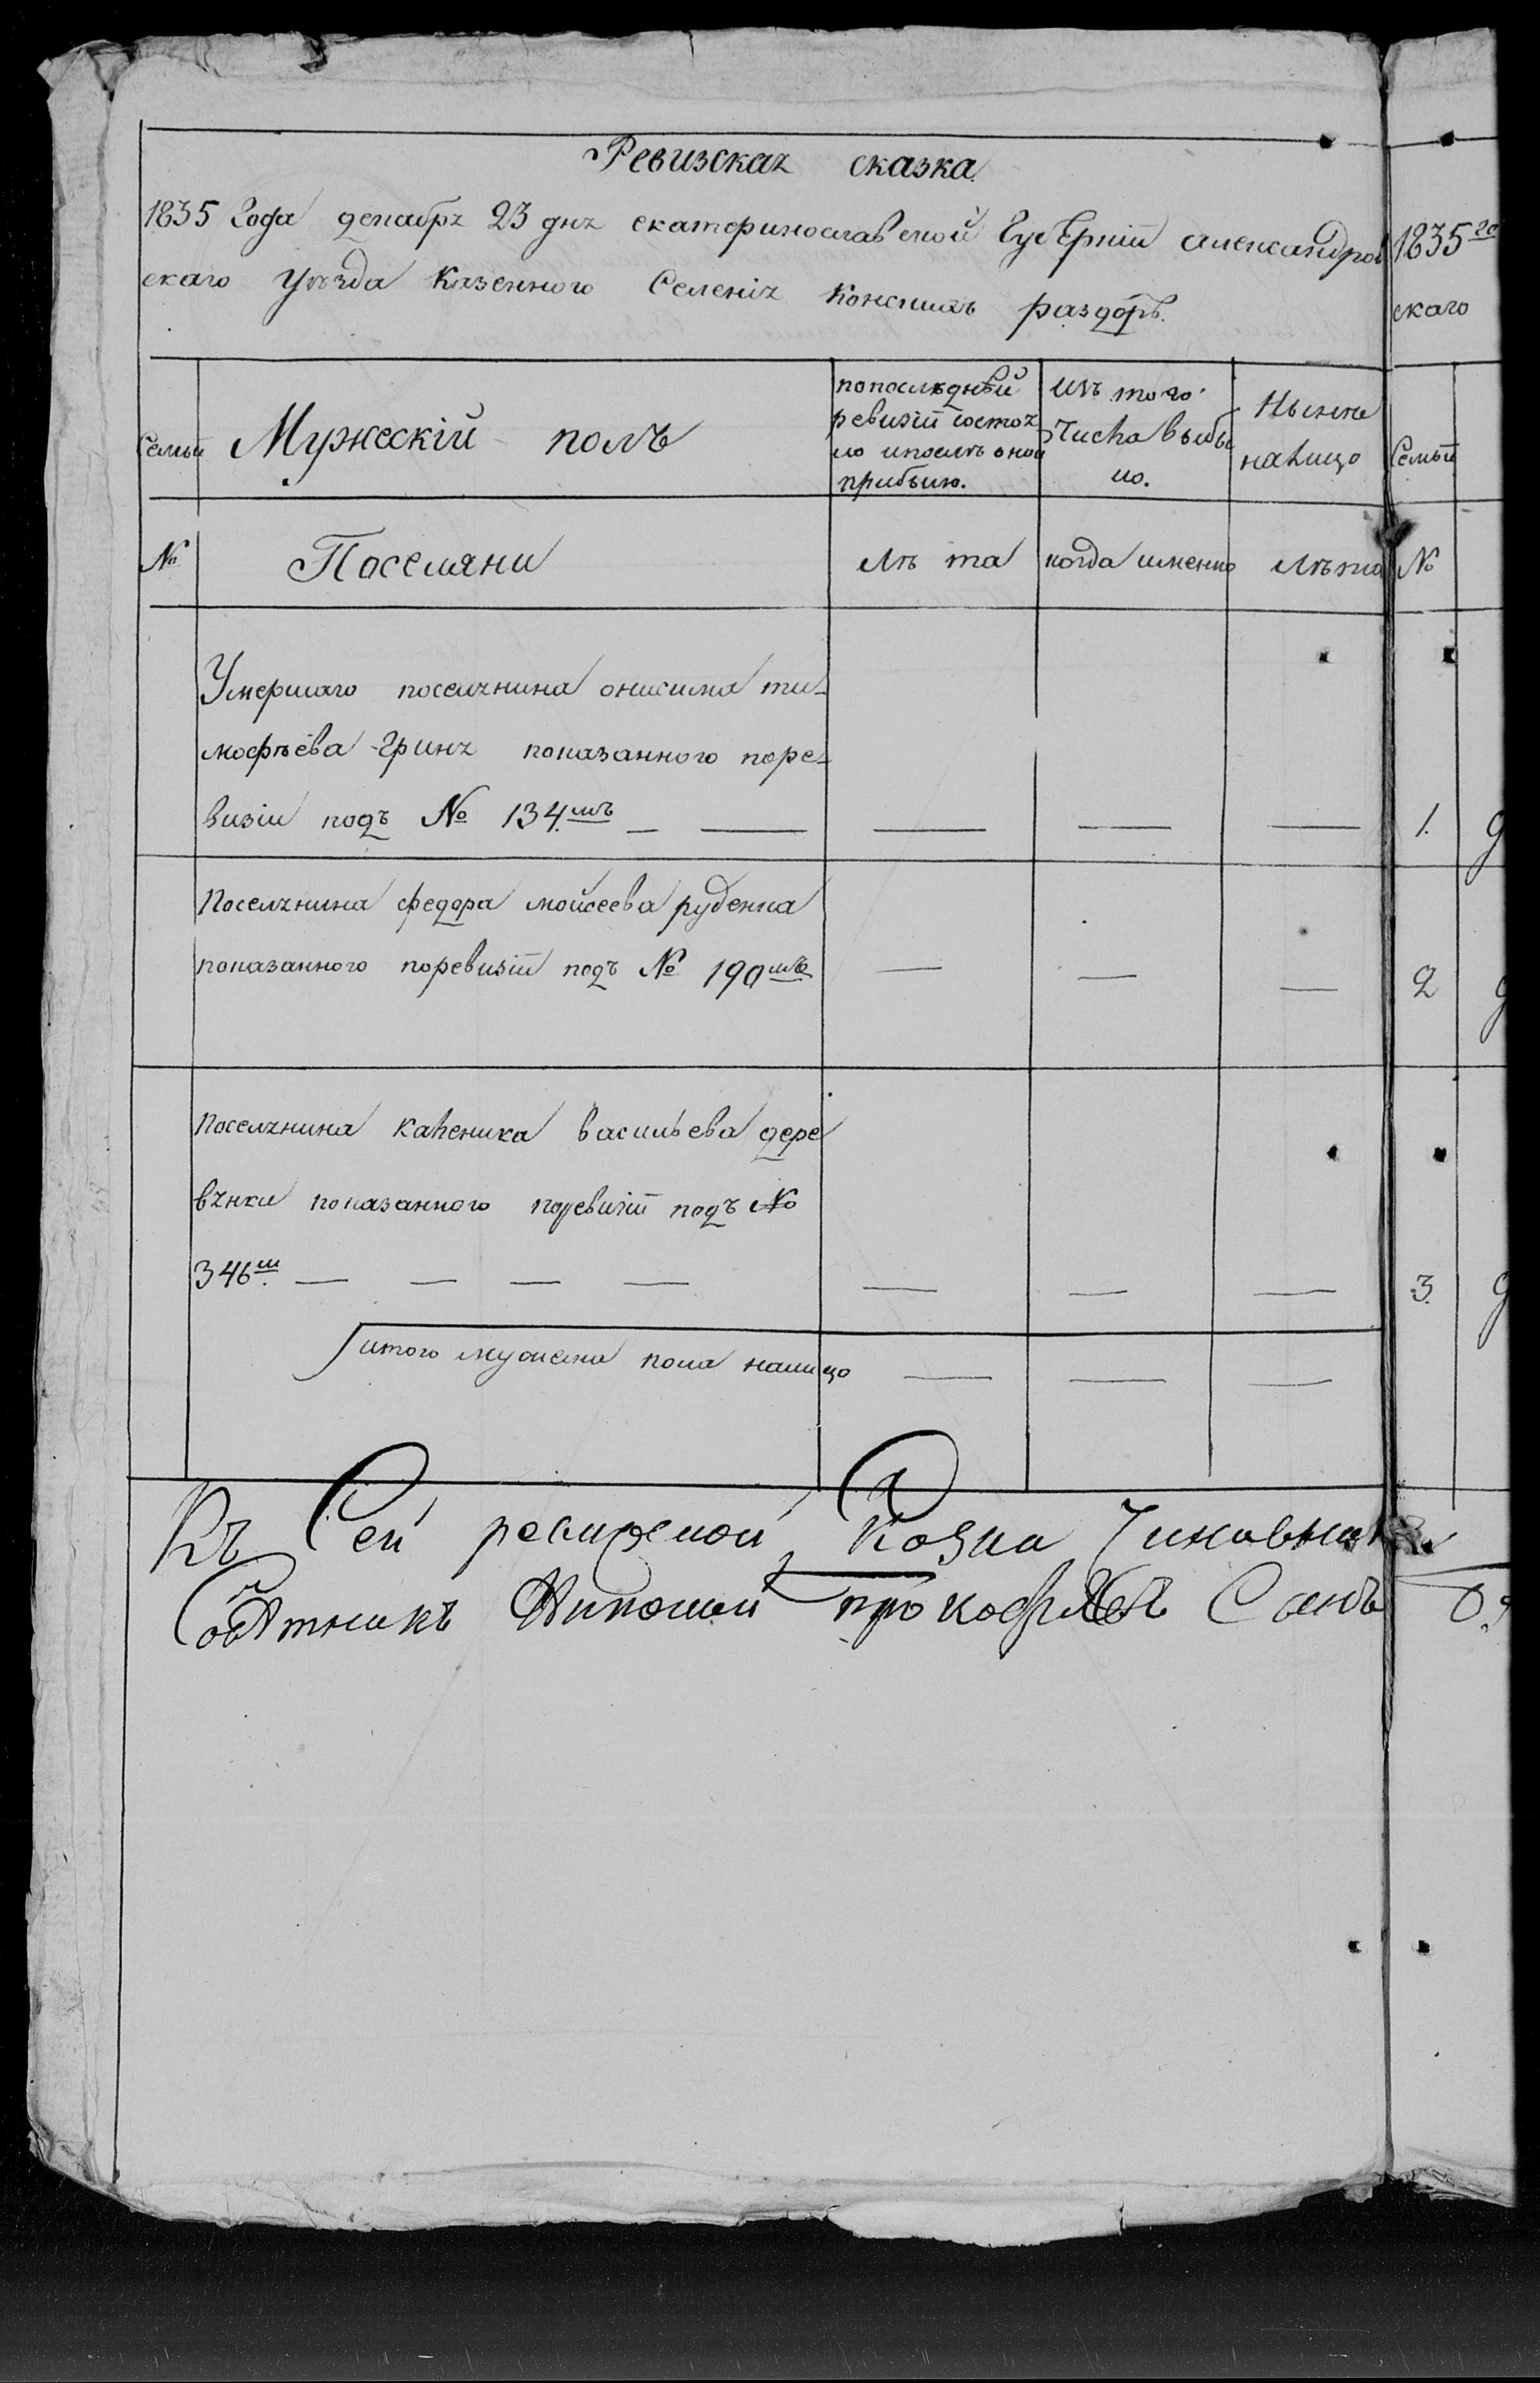 Ревизская сказка
1835 Года декабря 23 дня екатеринославской Губерніи александров
скаго уѣзда казенного Селенія Конскихъ раздоръ.
1835 го
скаго
Семьи
Мужескій полъ
попослѣдней
ревизіи состоя
ло ипослѣ оной
прибыло.
изъ того
Числа выбы
ло.
Нынѣ
налицо
Семьи
№
Поселяни
лѣ та
когда именно
лѣта
№
Умершаго поселянина онисима ти-
мофѣева Гриня показанного поре-
визіи подъ № 134.мъ
1.
Поселянина федора моисеева руденка
показанного поревизіи подъ № 190мъ
2
Поселянина каленика васильева дере
вянки показанного поревизіи подъ №
346м
3.
итого мужеска пола налицо
Къ Сей ревизской
прокофиевъ Сынъ